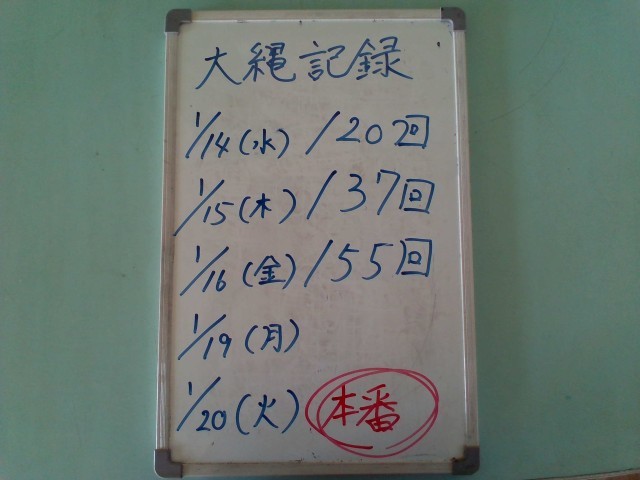 大縄記録
1/14(水) 120回
1/15(木) 137回
1/16(金) 155回
1/19(月)
1/20(火) 本番